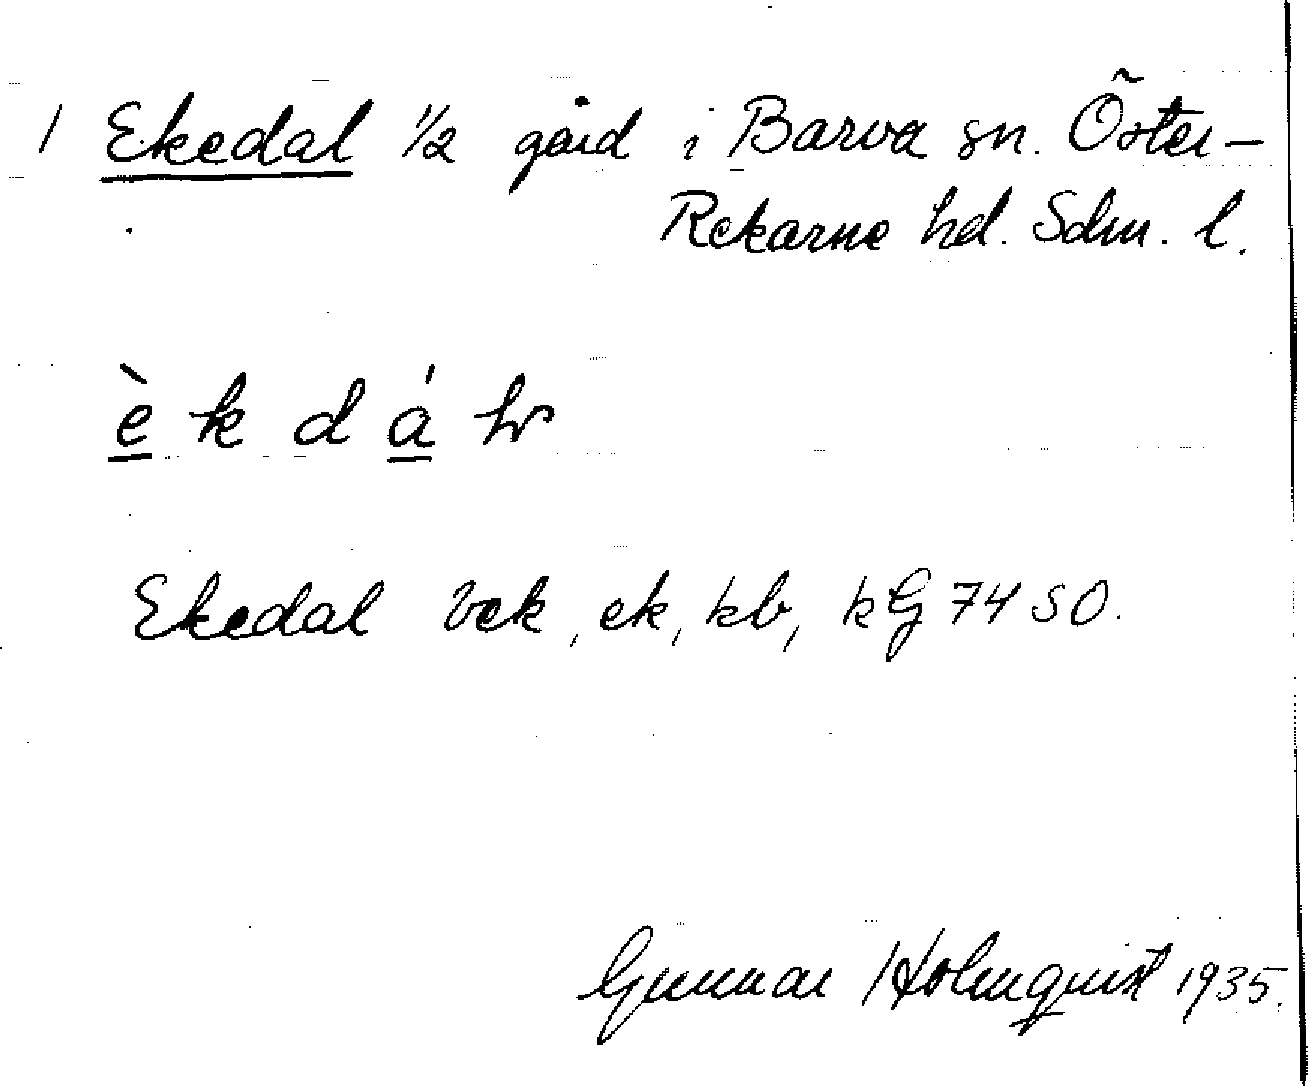 1 Ekedal 1/2 gård i Barva sn. Öster-
Rekarne hd. Sdm. l.
è k d á
Ekedal vek, ek, kb, kG 74 SO.
Gunnar Holmquist 1935.